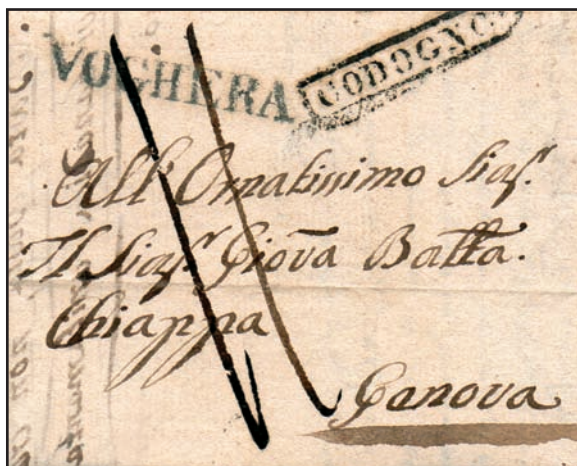 VOGHERA CODOGNO
All' Ornatissimo Sigr.
Il Sigr. Giōva Batta.
Chiappa
Genova